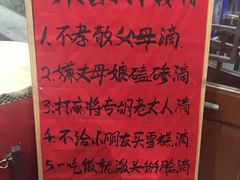 1.不孝敬父母滴
2.嫌丈母娘磕碜滴
3.打麻将专胡老丈人滴
4.不给小朋友买雪糕滴
5.一吃饭就